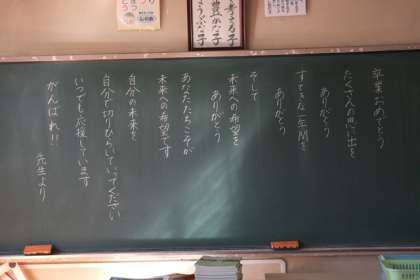 卒業おめでとう
たくさんの思い出を
ありがとう
すてきな一年間を
ありがとう
そして
未来への希望を
ありがとう
あなたたちこそが
未来への希望です
自分の未来を
自分で切りひらいていってください
いつでも応援しています
がんばれ!!
先生より
考える子
豊かな子